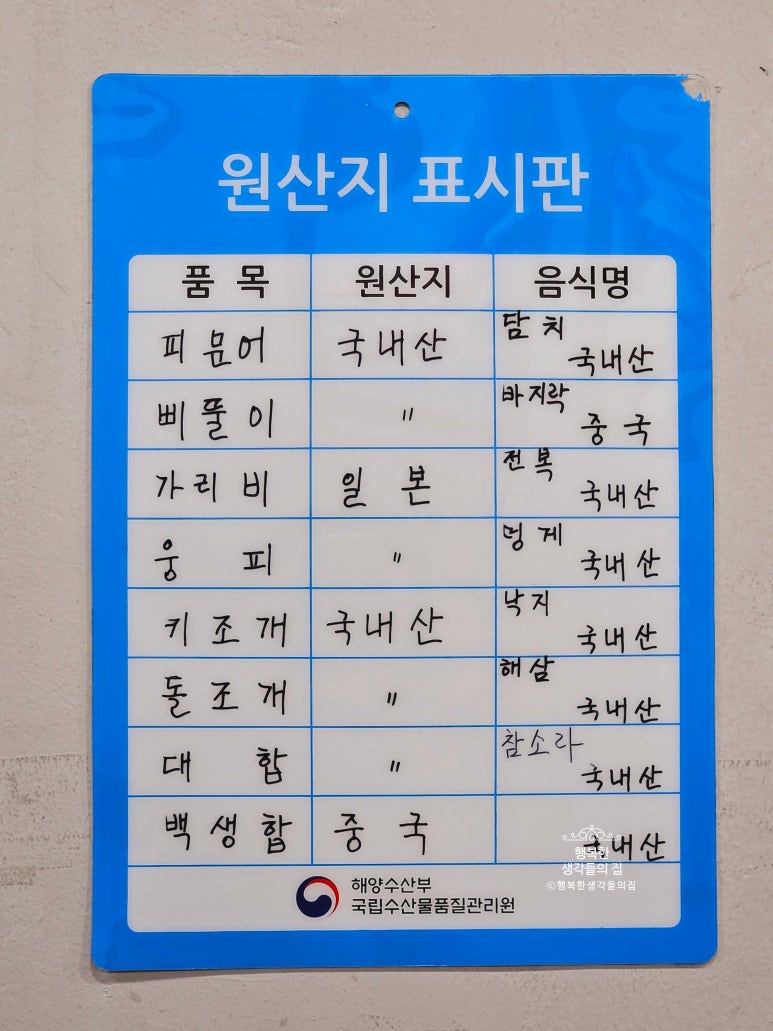 원산지 표시판
품 목 원산지 음식명
피문어 국내산 담치 국내산
삐뚤이 〃 바지락 중국
가리비 일본 전복 국내산
웅피 〃 멍게 국내산
키조개 국내산 낙지 국내산
돌조개 〃 해삼 국내산
대합 〃 참소라 국내산
백생합 중국 국내산
해양수산부
국립수산물품질관리원
행복한
생각들의 집
©행복한생각들의집